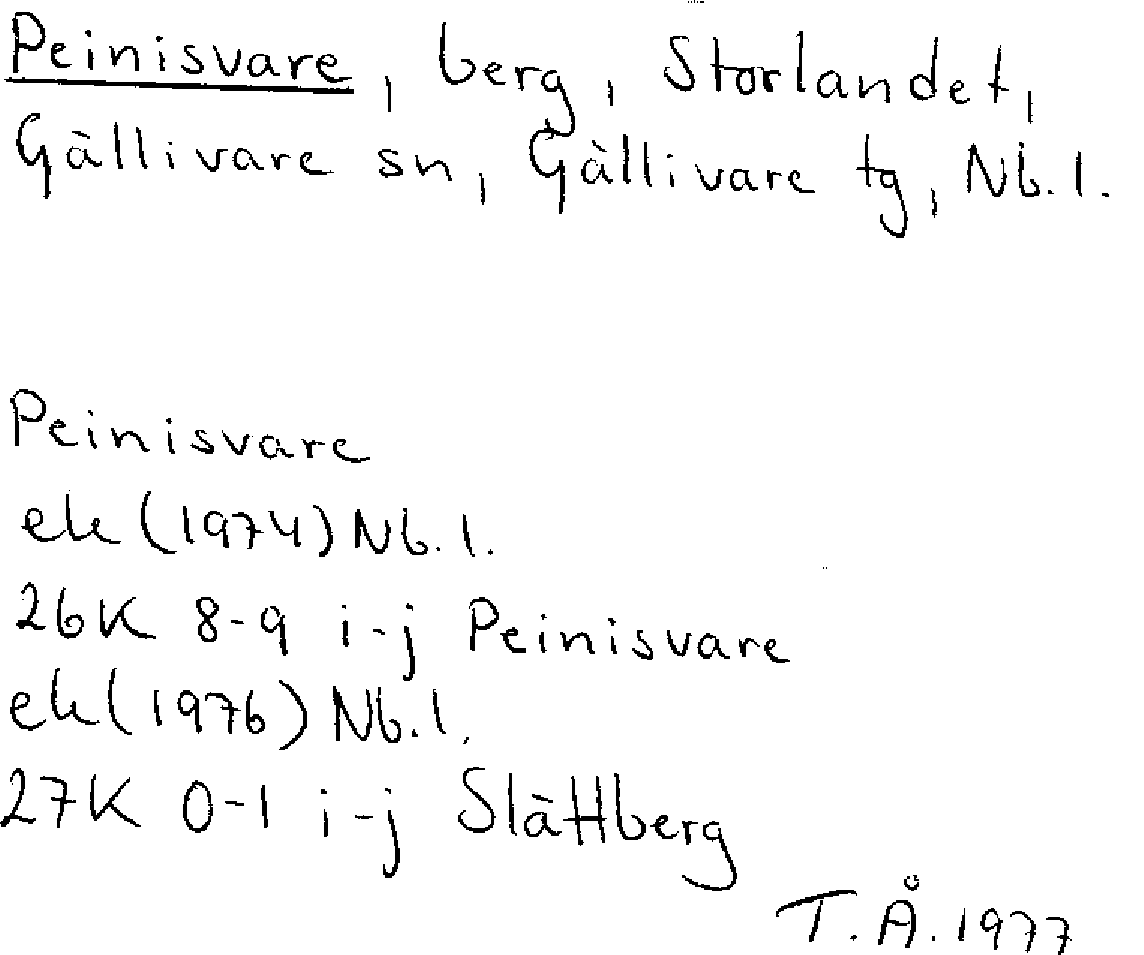 Peinisvare, berg, Storlandet,
Gällivare sn, Gällivare tg, Nb. l.
Peinisvare
ek (1974) Nb. l.
26K 8-9 i-j Peinisvare
ek (1976) Nb. l.
27K 0-1 i-j Slättberg
T. Å. 1977